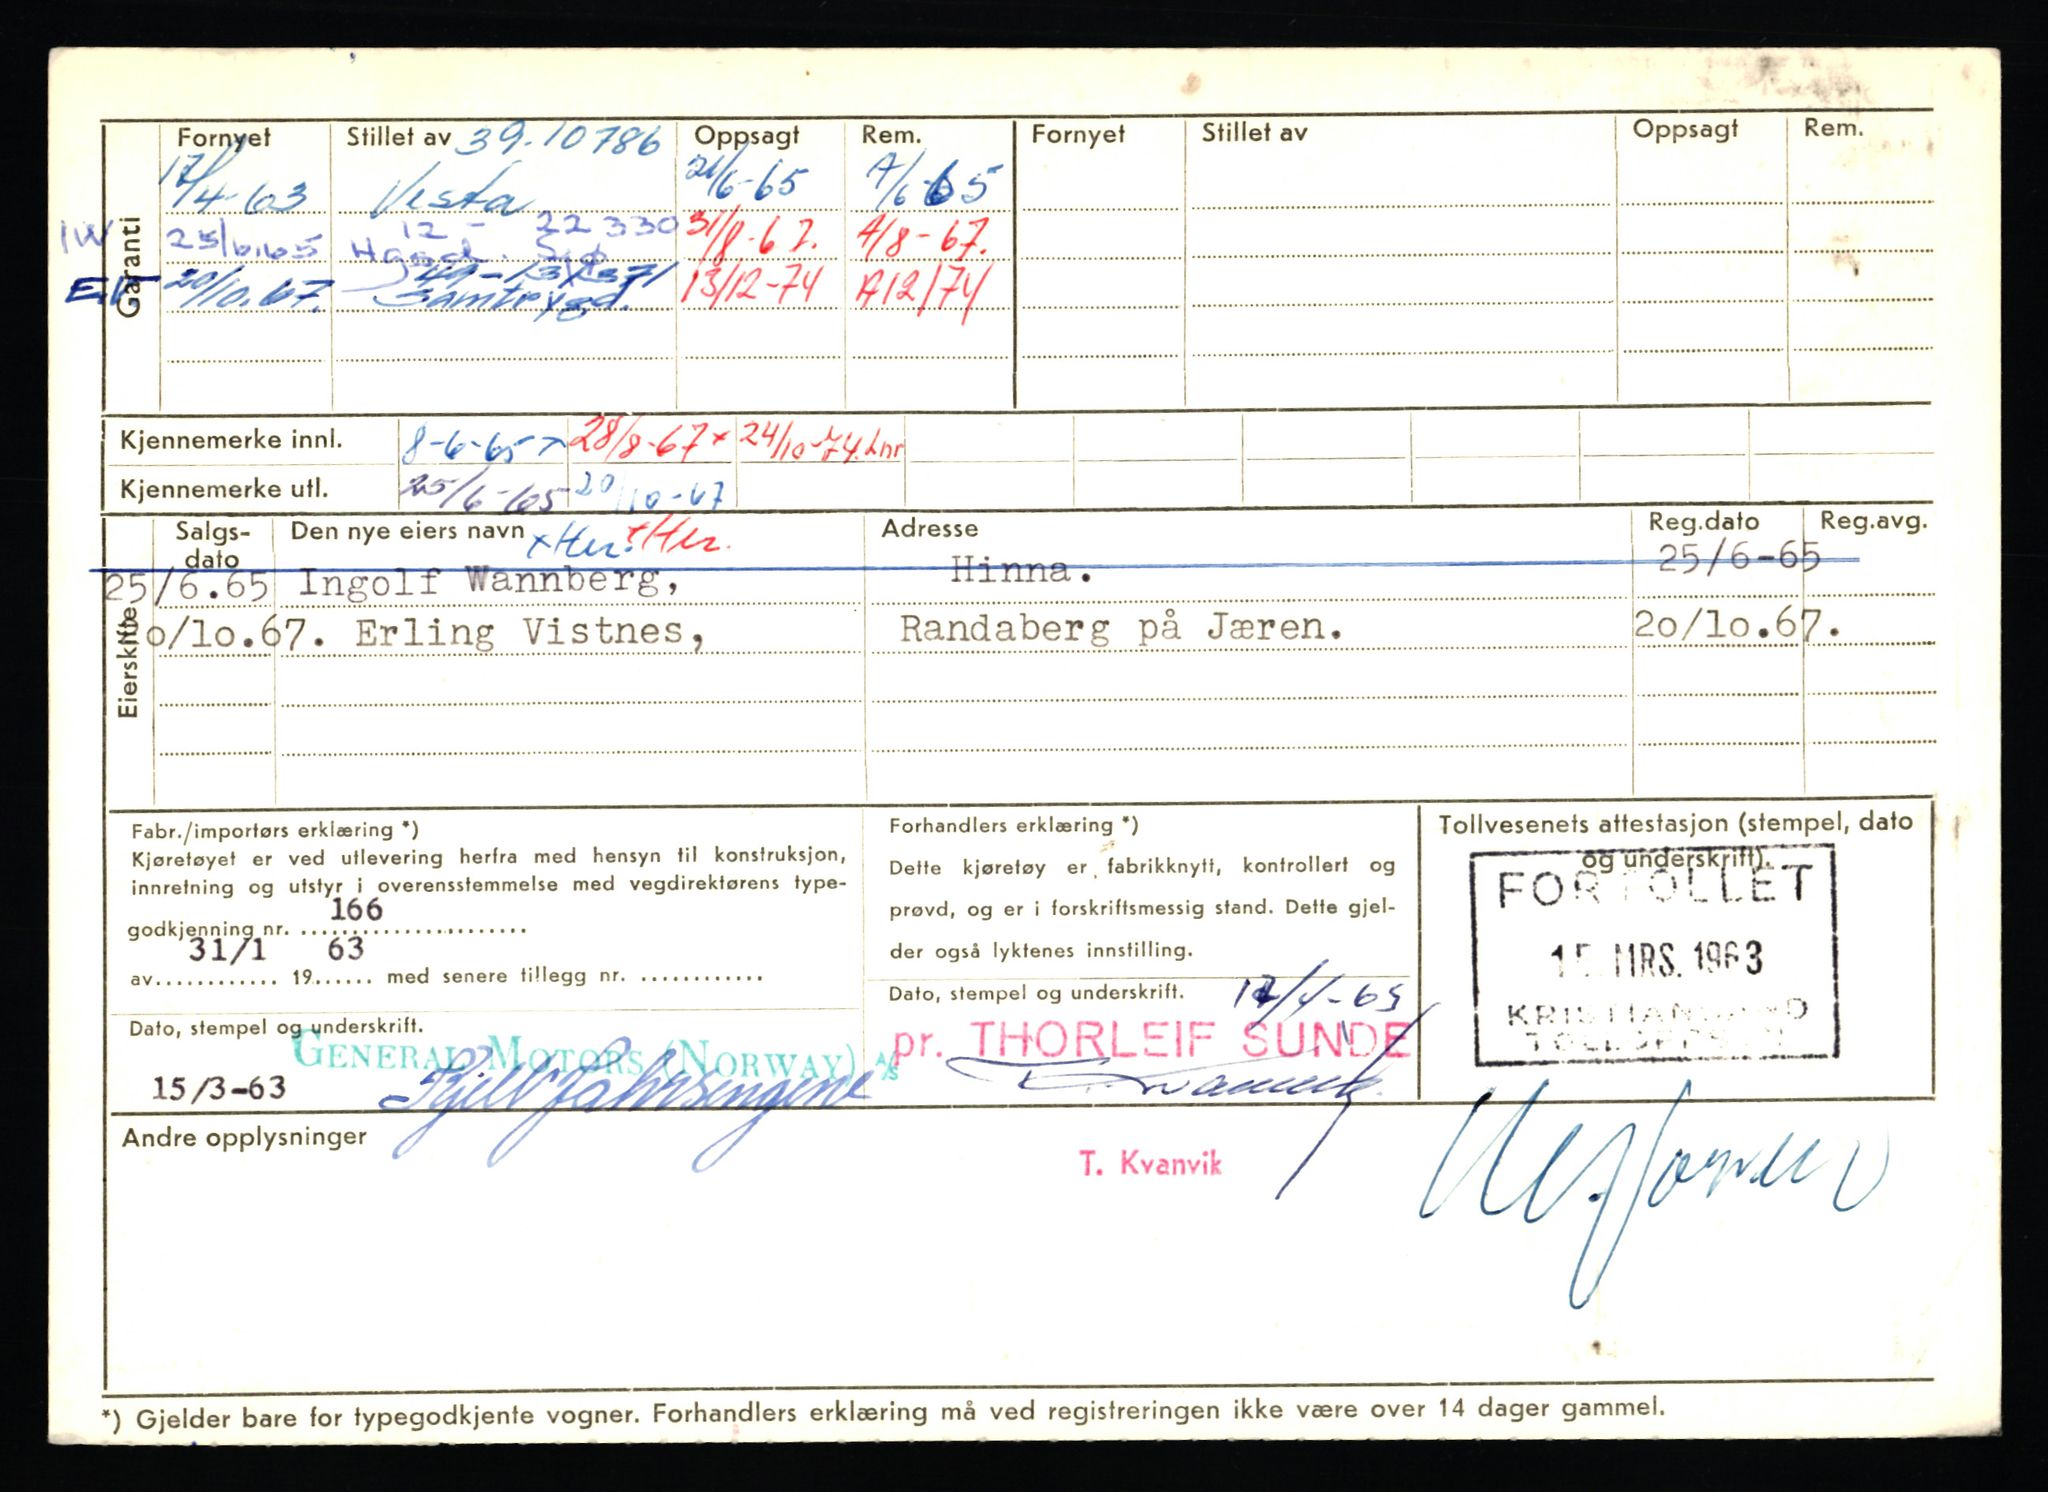 Garanti
Fornyet Stillet av 39-10786 Oppsagt Rem. Fornyet Stillet av Oppsagt Rem.
17/4-63 Vesta 21/6-65 A/6-65
IW 25/6.65 12 - 22330 31/8-67. A/8-67.
E.V 20/10.67. Samtrygd. 13/12-74 A12/74
Kjennemerke innl. 8-6-65 x 28/8-67 x 24/10-74. Lnr
Kjennemerke utl. 25/6-65 20/10-67
Eierskifte
Salgs-dato Den nye eiers navn xHer. xHer. Adresse Reg.dato Reg.avg.
25/6.65 Ingolf Wannberg, Hinna. 25/6-65
o/lo.67. Erling Vistnes, Randaberg på Jæren. 2o/lo.67.
Fabr./importørs erklæring *)
Kjøretøyet er ved utlevering herfra med hensyn til konstruksjon,
innretning og utstyr i overensstemmelse med vegdirektørens type-
godkjenning nr. 166
av 31/1 19 63 med senere tillegg nr. ............
Dato, stempel og underskrift.
GENERAL MOTORS (NORWAY) A/S
15/3-63
Forhandlers erklæring *)
Dette kjøretøy er fabrikknytt, kontrollert og
prøvd, og er i forskriftsmessig stand. Dette gjel-
der også lyktenes innstilling.
Dato, stempel og underskrift.
pr. THORLEIF SUNDE
T. Kvanvik
Tollvesenets attestasjon (stempel, dato
og underskrift).
FORTOLLET
15 MRS. 1963
KRISTIANSAND
Andre opplysninger
*) Gjelder bare for typegodkjente vogner. Forhandlers erklæring må ved registreringen ikke være over 14 dager gammel.